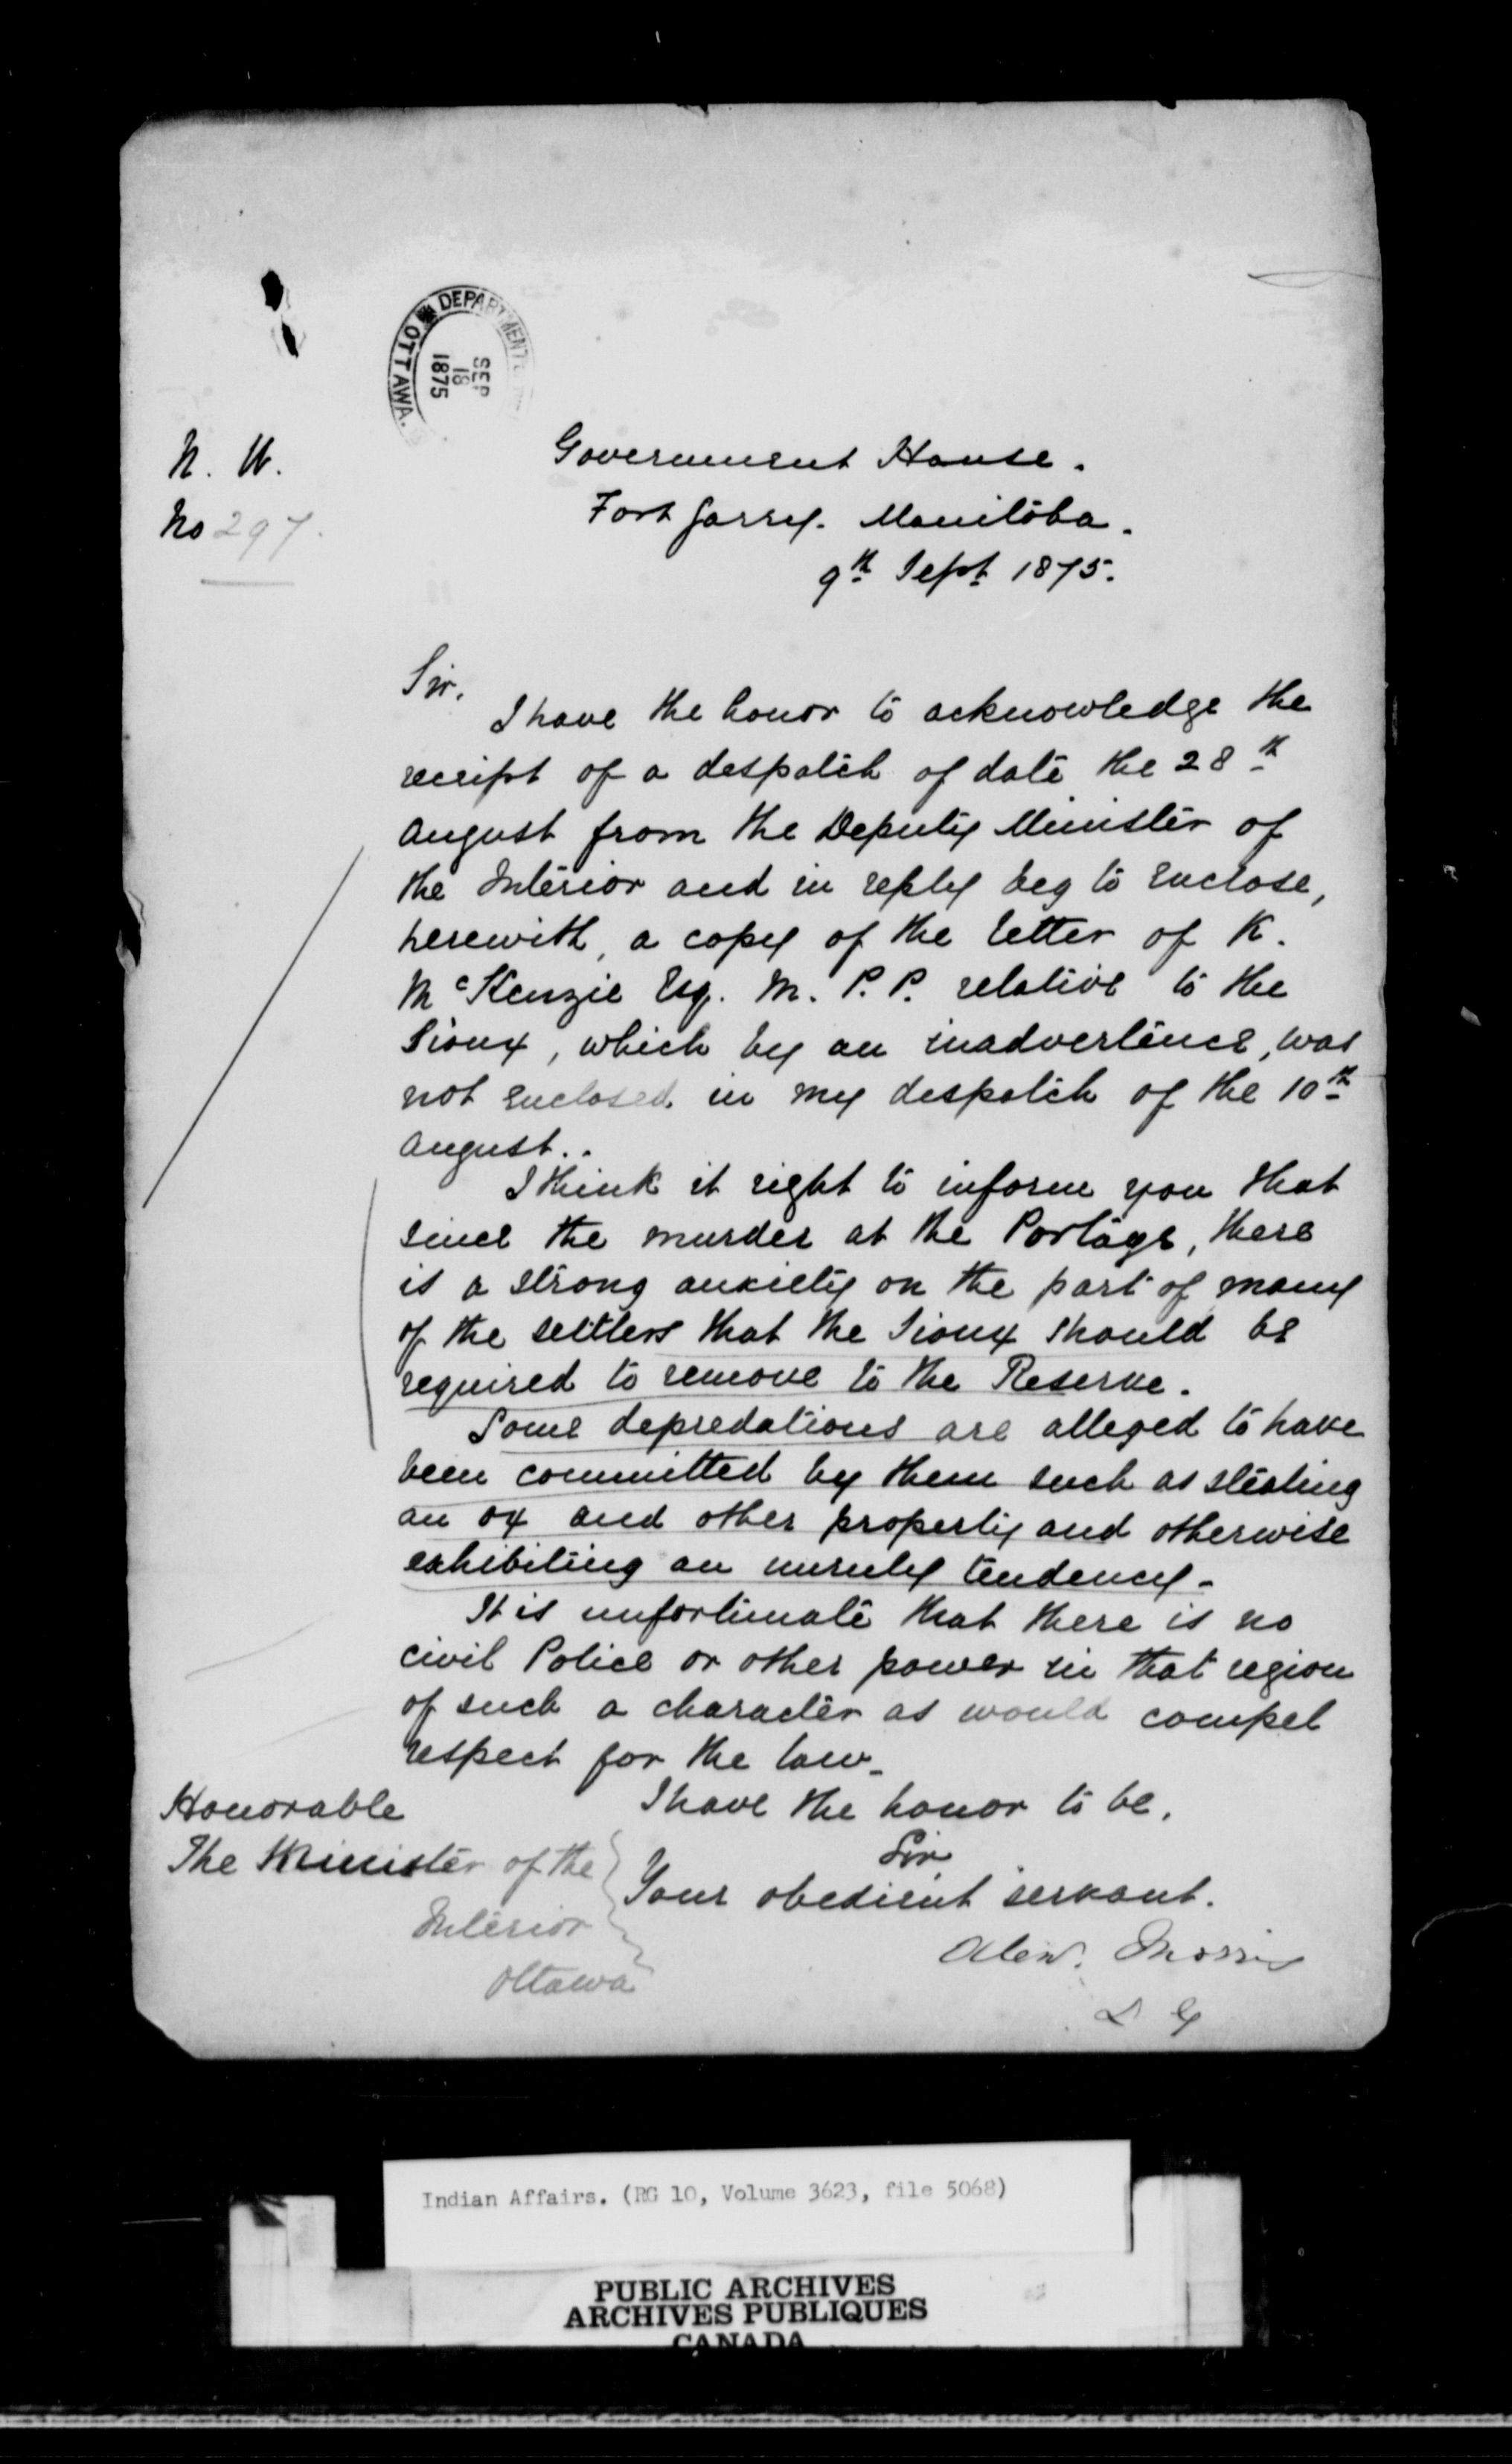 DEPARTMENT
OTTAWA.
SEP
18
1875
N. W.
No 297.
Government House.
Fort Garry. Manitoba.
9th Sept 1875.
Sir.
I have the honor to acknowledge the
receipt of a despatch of date the 28th
August from the Deputy Minister of
the Interior and in reply beg to enclose,
herewith, a copy of the letter of K.
McKenzie Esq. M. P. P. relative to the
Sioux, which by an inadvertence, was
not enclosed in my despatch of the 10th
August..
I think it right to inform you that
since the murder at the Portage, there
is a strong anxiety on the part of many
of the settlers that the Sioux should be
required to remove to the Reserve.
Some depredations are alleged to have
been committed by them such as stealing
an ox and other property and otherwise
exhibiting an unruly tendency-
It is unfortunate that there is no
civil Police or other power in that region
of such a character as would compel
respect for the law-
I have the honor to be,
Sir
Your obedient servant.
Alexr. Morris
L G
Honorable
The Minister of the
Interior
Ottawa
Indian Affairs. (RG 10, Volume 3623, file 5068)
PUBLIC ARCHIVES
ARCHIVES PUBLIQUES
CANADA